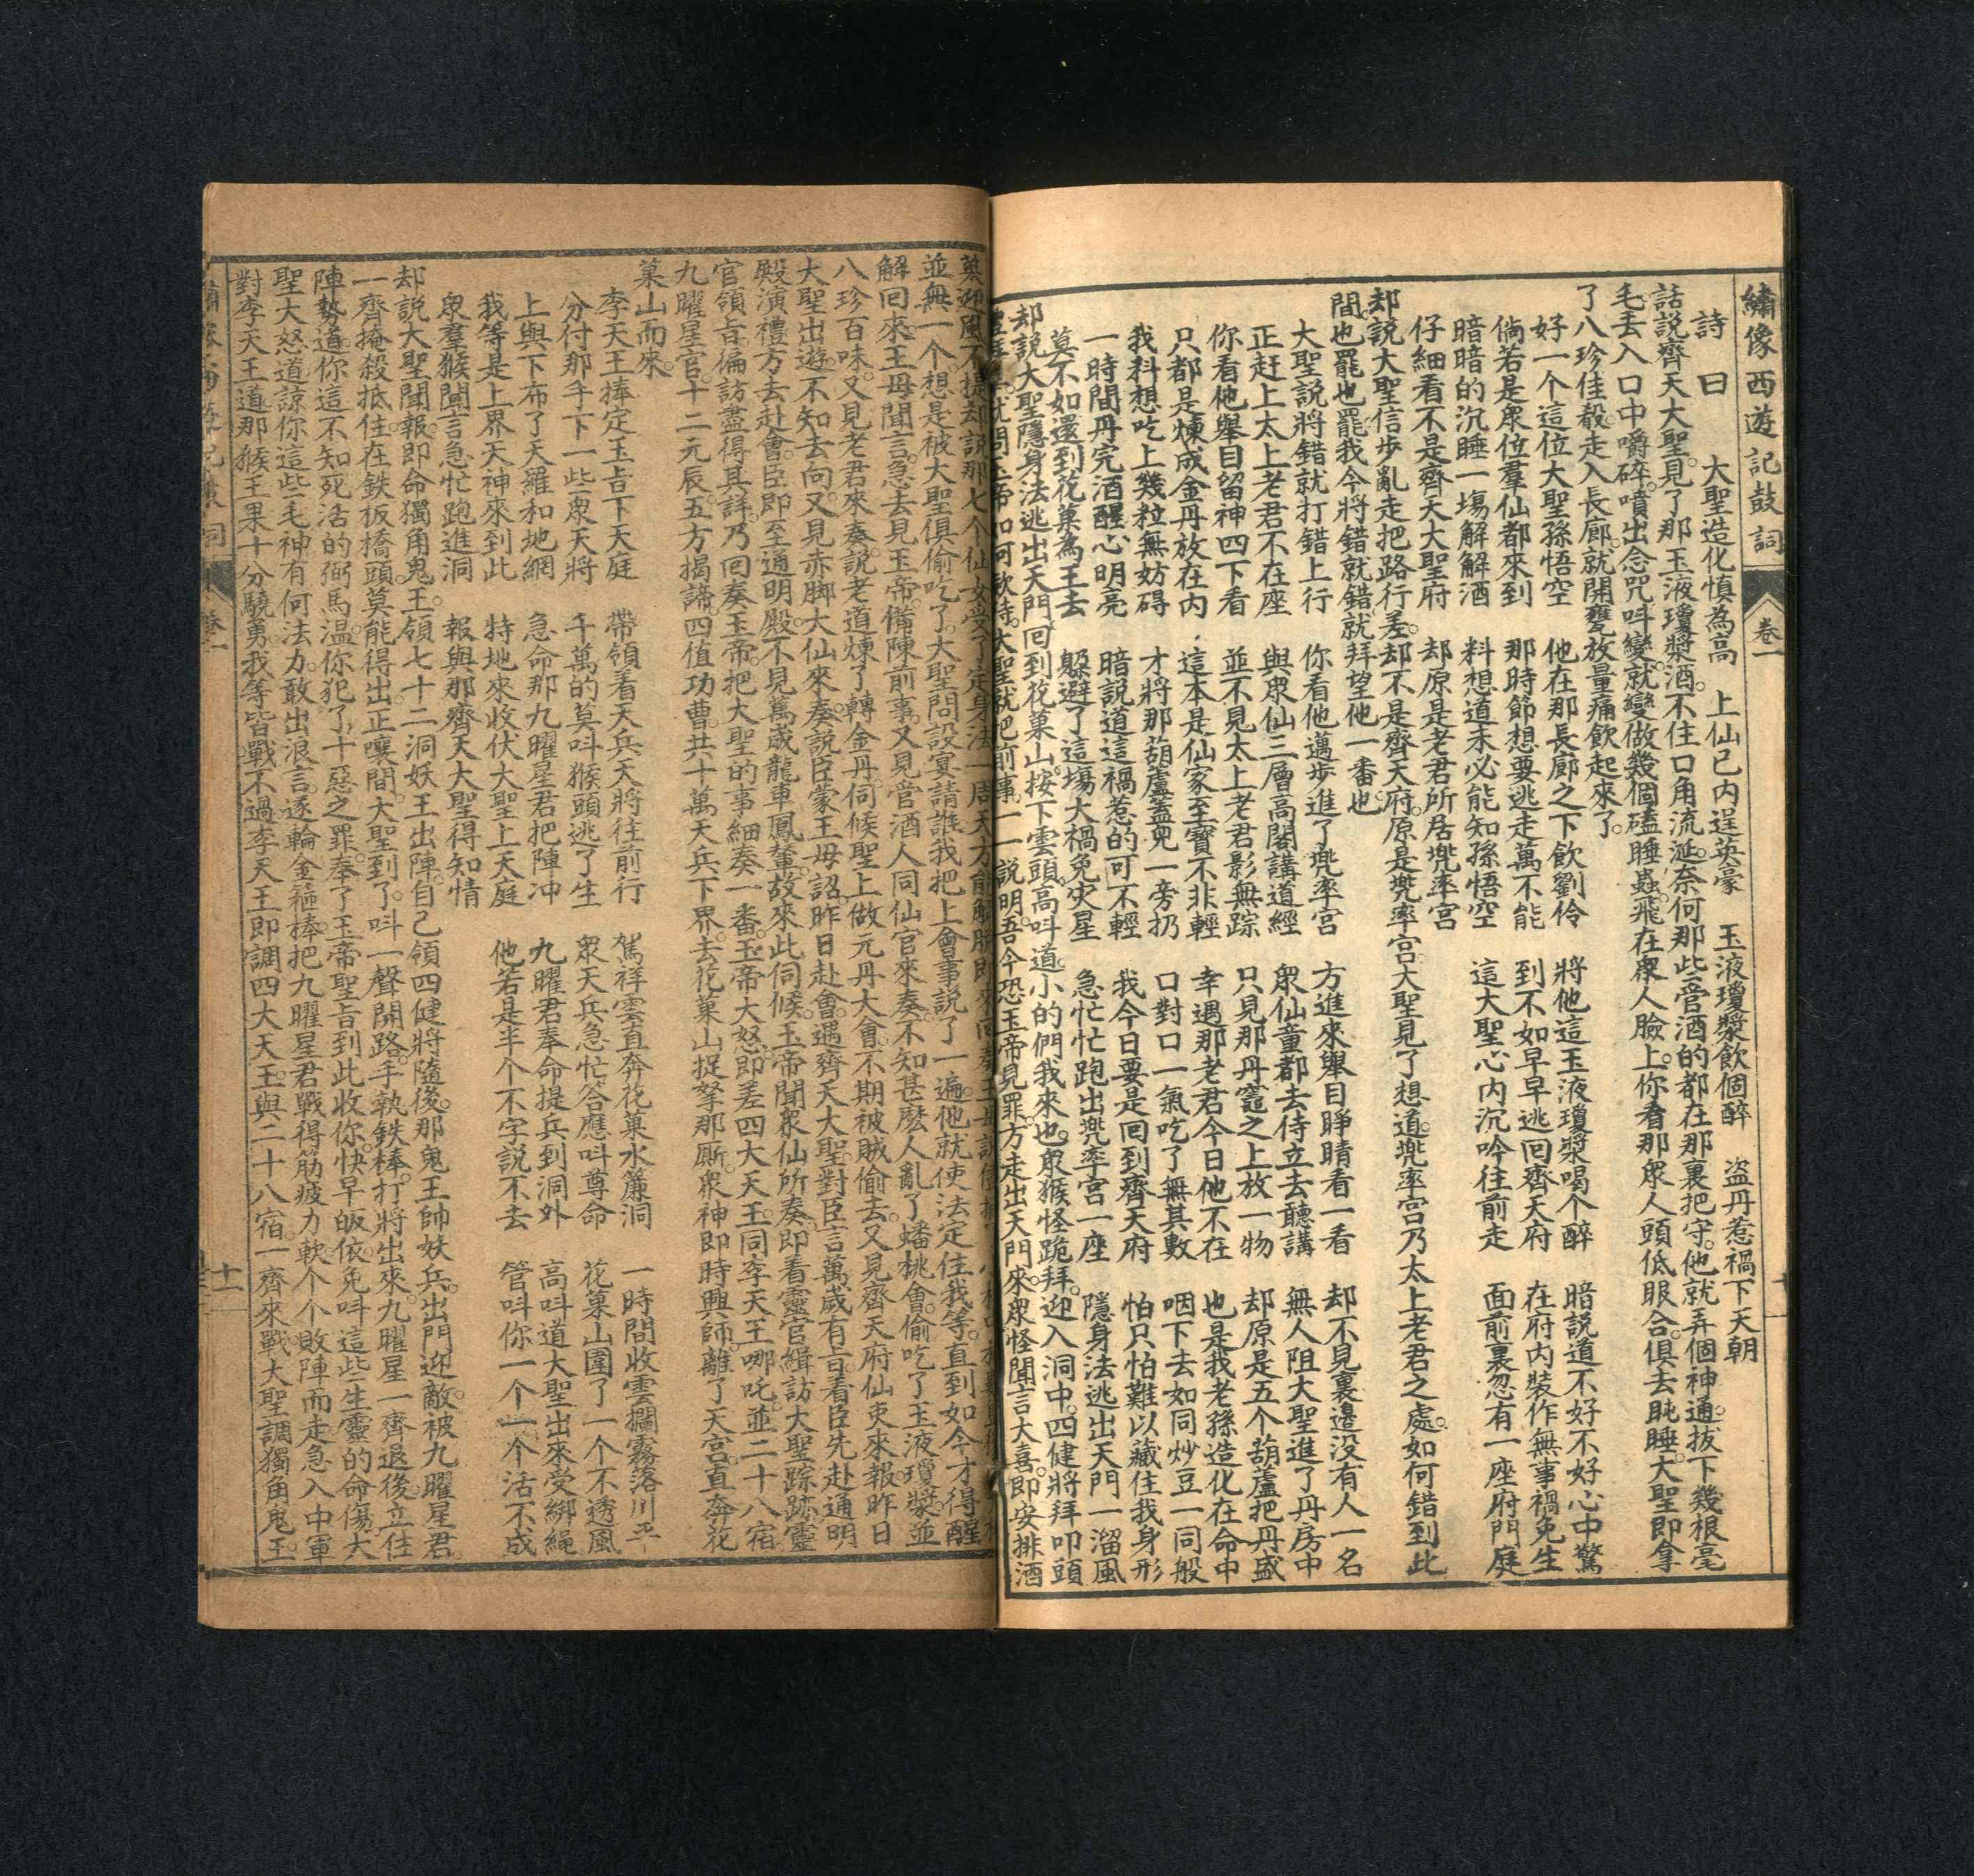 繡像西遊記鼓詞 卷一
詩曰 大聖造化慎為高 上仙已內逞英豪 玉液瓊漿飲個醉 盗丹惹禍下天朝
話説齊天大聖。見了那玉液瓊漿酒。不住口角流涎。奈何那些管酒的都在那裏把守。他就弄個神通。拔下幾根毫
毛丢入口中嚼碎。噴出念咒呌變。就變做幾個磕睡蟲。飛在衆人臉上。你看那衆人頭低眼合。俱去盹睡。大聖即拿
了八珍佳殽。走入長廊。就開甕放量痛飲起來了。
好一个這位大聖孫悟空 他在那長廊之下飲劉伶 將他這玉液瓊漿喝个醉 暗説道不好不好心中驚
倘若是衆位羣仙都來到 那時節想要逃走萬不能 到不如早早逃回齊天府 在府内裝作無事禍免生
暗暗的沉睡一塲解解酒 料想道未必能知孫悟空 這大聖心内沉吟往前走 面前裏忽有一座府門庭
仔細看不是齊天大聖府 却原是老君所居兠率宮
却説大聖信步亂走把路行差。却不是齊天府。原是兠率宮。大聖見了想道。兠率宮乃太上老君之處。如何錯到此
間。也罷也罷。我今將錯就錯。就拜望他一番也
大聖説將錯就打錯上行 你看他邁步進了兠率宮 方進來舉目睜睛看一看 却不見裏邉没有人一名
正赶上太上老君不在座 與衆仙三層高閣講道經 衆仙童都去侍立去聽講 無人阻大聖進了丹房中
你看他舉目留神四下看 並不見太上老君影無踪 只見那丹竈之上放一物 却原是五个葫蘆把丹盛
只都是煉成金丹放在内 這本是仙家至寶不非輕 幸遇那老君今日他不在 也是我老孫造化在命中
我料想吃上幾粒無妨碍 才將那葫蘆蓋兒一旁扔 口對口一氣吃了無其數 咽下去如同炒豆一同般
一時間丹完酒醒心明亮 暗説道這禍惹的可不輕 我今日要是囘到齊天府 怕只怕難以藏住我身形
莫不如還到花菓為王去 躱避了這塲大禍免灾星 急忙忙跑出兠率宮一座 隱身法逃出天門一溜風
却説大聖隱身法逃出天門囘到花菓山。按下雲頭。高呌道小的們我來也。衆猴怪跪拜。迎入洞中。四健將拜叩頭
就問玉帝如何款待。大聖就把前事。一一説明。吾今恐玉帝見罪。方走出天門來。衆怪聞言大喜。即安排酒
並無一个。想是被大聖俱偷吃了。大聖問設宴請誰。我把上會事説了一遍。他就使法定住我等。直到如今才得醒
解回來。王母聞言。急去見玉帝。備陳前事。又見管酒人同仙官來奏。不知甚麽人亂了蟠桃會。偷吃了玉液瓊漿並
八珍百味。又見老君來奏。説老道煉了轉金丹。伺候聖上做元丹大會。不期被賊偷去。又見齊天府仙吏來報昨日
大聖出遊。不知去向。又見赤脚大仙來奏。説臣蒙王母詔。昨日赴會。遇齊天大聖。對臣言萬歲有旨。看臣先赴通明
殿演禮。方去赴會。臣即至通明殿。不見萬歲龍車鳳輦。故來此伺候。玉帝聞衆仙所奏。即看靈官緝訪大聖踪跡。靈
官領旨。徧訪盡得其詳。乃囘奏玉帝。把大聖的事細奏一番。玉帝大怒。即差四大天王。同李天王哪吒。並二十八宿
九曜星官。十二元辰。五方揭諦。四值功曹。共十萬天兵下界。去花菓山捉拏那厮。衆神即時興師。離了天宮。直奔花
菓山而來。
李天王捧定玉旨下天庭 帶領着天兵天將往前行 駕祥雲直奔花菓水簾洞 一時間收雲攔霧落川平
分付那手下一些衆天將 千萬的莫呌猴頭逃了生 衆天兵急忙答應呌尊命 花菓山圍了一个不透風
上與下布了天羅和地網 急命那九曜星君把陣冲 九曜君奉命提兵到洞外 高呌道大聖出來受綁繩
我等是上界天神來到此 特地來收伏大聖上天庭 他若是半个不字説不去 管呌你一个一个活不成
衆羣猴聞言急忙跑進洞 報與那齊天大聖得知情
却説大聖聞報。即命獨角鬼王。領七十二洞妖王出陣。自己領四健將隨後。那鬼王帥妖兵。出門迎敵。被九曜星君
一齊掩殺。抵住在鉄板橋頭。莫能得出。正嚷間。大聖到了。呌一聲開路。手執鉄棒。打將出來。九曜星一齊退後。立住
陣勢道。你這不知死活的弼馬温。你犯了十惡之罪。奉了玉帝聖旨到此收你。快早皈依。免呌這些生靈的命傷。大
聖大怒道。諒你這些毛神。有何法力。敢出浪言。遂輪金箍棒。把九曜星君戰得筋疲力軟。个个敗陣而走。急入中軍
對李天王道。那猴王果十分驍勇。我等皆戰不過。李天王即調四大天王。與二十八宿。一齊來戰。大聖調獨角鬼王
十一